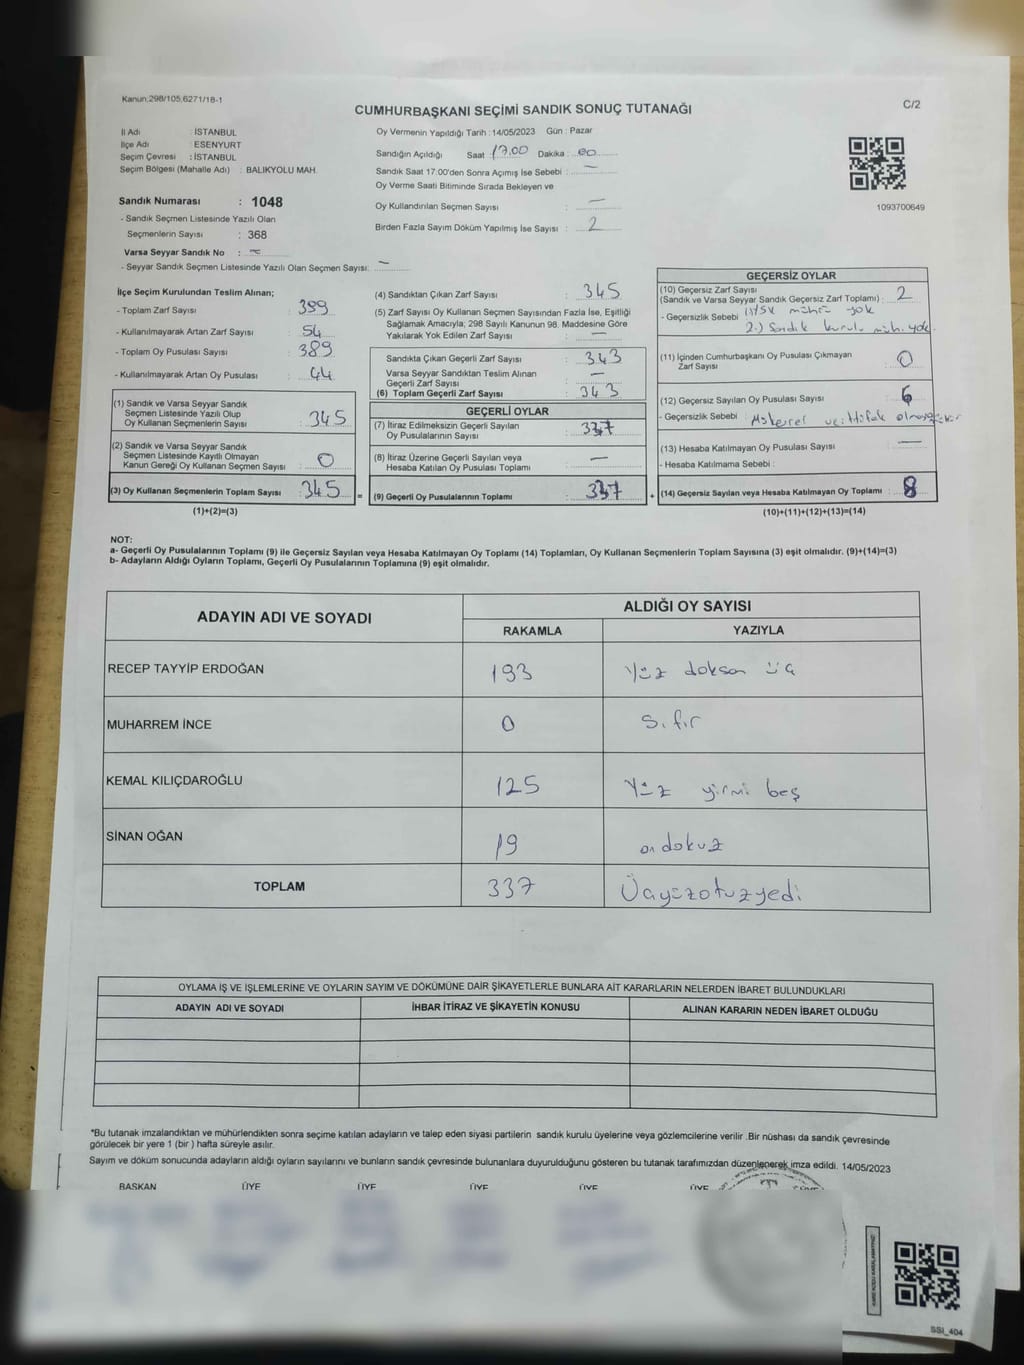 Kanun;298/105,6271/18-1
C/2
CUMHURBAŞKANI SEÇİMİ SANDIK SONUÇ TUTANAĞI
İl Adı : İSTANBUL
İlçe Adı : ESENYURT
Seçim Çevresi : İSTANBUL
Seçim Bölgesi (Mahalle Adı) : BALIKYOLU MAH.
Sandık Numarası : 1048
- Sandık Seçmen Listesinde Yazılı Olan
Seçmenlerin Sayısı : 368
Varsa Seyyar Sandık No : —
- Seyyar Sandık Seçmen Listesinde Yazılı Olan Seçmen Sayısı: —
Oy Vermenin Yapıldığı Tarih : 14/05/2023 Gün : Pazar
Sandığın Açıldığı Saat 17.00 Dakika : 00
Sandık Saat 17:00'den Sonra Açımış İse Sebebi : —
Oy Verme Saati Bitiminde Sırada Bekleyen ve
Oy Kullandırılan Seçmen Sayısı : —
Birden Fazla Sayım Döküm Yapılmış İse Sayısı : 2
1093700649
İlçe Seçim Kurulundan Teslim Alınan;
- Toplam Zarf Sayısı : 399
- Kullanılmayarak Artan Zarf Sayısı : 54
- Toplam Oy Pusulası Sayısı : 389
- Kullanılmayarak Artan Oy Pusulası : 44
(1) Sandık ve Varsa Seyyar Sandık
Seçmen Listesinde Yazılı Olup
Oy Kullanan Seçmenlerin Sayısı : 345
(2) Sandık ve Varsa Seyyar Sandık
Seçmen Listesinde Kayıtlı Olmayan
Kanun Gereği Oy Kullanan Seçmen Sayısı : 0
(3) Oy Kullanan Seçmenlerin Toplam Sayısı : 345 =
(1)+(2)=(3)
(4) Sandıktan Çıkan Zarf Sayısı : 345
(5) Zarf Sayısı Oy Kullanan Seçmen Sayısından Fazla İse, Eşitliği
Sağlamak Amacıyla; 298 Sayılı Kanunun 98. Maddesine Göre
Yakılarak Yok Edilen Zarf Sayısı : —
Sandıkta Çıkan Geçerli Zarf Sayısı : 343
Varsa Seyyar Sandıktan Teslim Alınan
Geçerli Zarf Sayısı : —
(6) Toplam Geçerli Zarf Sayısı : 343
GEÇERLİ OYLAR
(7) İtiraz Edilmeksizin Geçerli Sayılan
Oy Pusulalarının Sayısı : 337
(8) İtiraz Üzerine Geçerli Sayılan veya
Hesaba Katılan Oy Pusulası Toplamı : —
(9) Geçerli Oy Pusulalarının Toplamı : 337 +
GEÇERSİZ OYLAR
(10) Geçersiz Zarf Sayısı
(Sandık ve Varsa Seyyar Sandık Geçersiz Zarf Toplamı) : 2
- Geçersizlik Sebebi 1) YSK mührü yok
2-) Sandık kurulu müh. yok.
(11) İçinden Cumhurbaşkanı Oy Pusulası Çıkmayan
Zarf Sayısı : 0
(12) Geçersiz Sayılan Oy Pusulası Sayısı : 6
- Geçersizlik Sebebi
(13) Hesaba Katılmayan Oy Pusulası Sayısı : —
- Hesaba Katılmama Sebebi :
(14) Geçersiz Sayılan veya Hesaba Katılmayan Oy Toplamı : 8
(10)+(11)+(12)+(13)=(14)
NOT:
a- Geçerli Oy Pusulalarının Toplamı (9) ile Geçersiz Sayılan veya Hesaba Katılmayan Oy Toplamı (14) Toplamları, Oy Kullanan Seçmenlerin Toplam Sayısına (3) eşit olmalıdır. (9)+(14)=(3)
b- Adayların Aldığı Oyların Toplamı, Geçerli Oy Pusulalarının Toplamına (9) eşit olmalıdır.
ADAYIN ADI VE SOYADI ALDIĞI OY SAYISI
RAKAMLA YAZIYLA
RECEP TAYYİP ERDOĞAN 193 Yüz doksan üç
MUHARREM İNCE 0 Sıfır
KEMAL KILIÇDAROĞLU 125 Yüz yirmi beş
SİNAN OĞAN 19 on dokuz
TOPLAM 337 Üçyüzotuzyedi
OYLAMA İŞ VE İŞLEMLERİNE VE OYLARIN SAYIM VE DÖKÜMÜNE DAİR ŞİKAYETLERLE BUNLARA AİT KARARLARIN NELERDEN İBARET BULUNDUKLARI
ADAYIN ADI VE SOYADI İHBAR İTİRAZ VE ŞİKAYETİN KONUSU ALINAN KARARIN NEDEN İBARET OLDUĞU
*Bu tutanak imzalandıktan ve mühürlendikten sonra seçime katılan adayların ve talep eden siyasi partilerin sandık kurulu üyelerine veya gözlemcilerine verilir .Bir nüshası da sandık çevresinde
görülecek bir yere 1 (bir ) hafta süreyle asılır.
Sayım ve döküm sonucunda adayların aldığı oyların sayılarını ve bunların sandık çevresinde bulunanlara duyurulduğunu gösteren bu tutanak tarafımızdan düzenlenerek imza edildi. 14/05/2023
BAŞKAN ÜYE ÜYE ÜYE ÜYE ÜYE
SSI_404